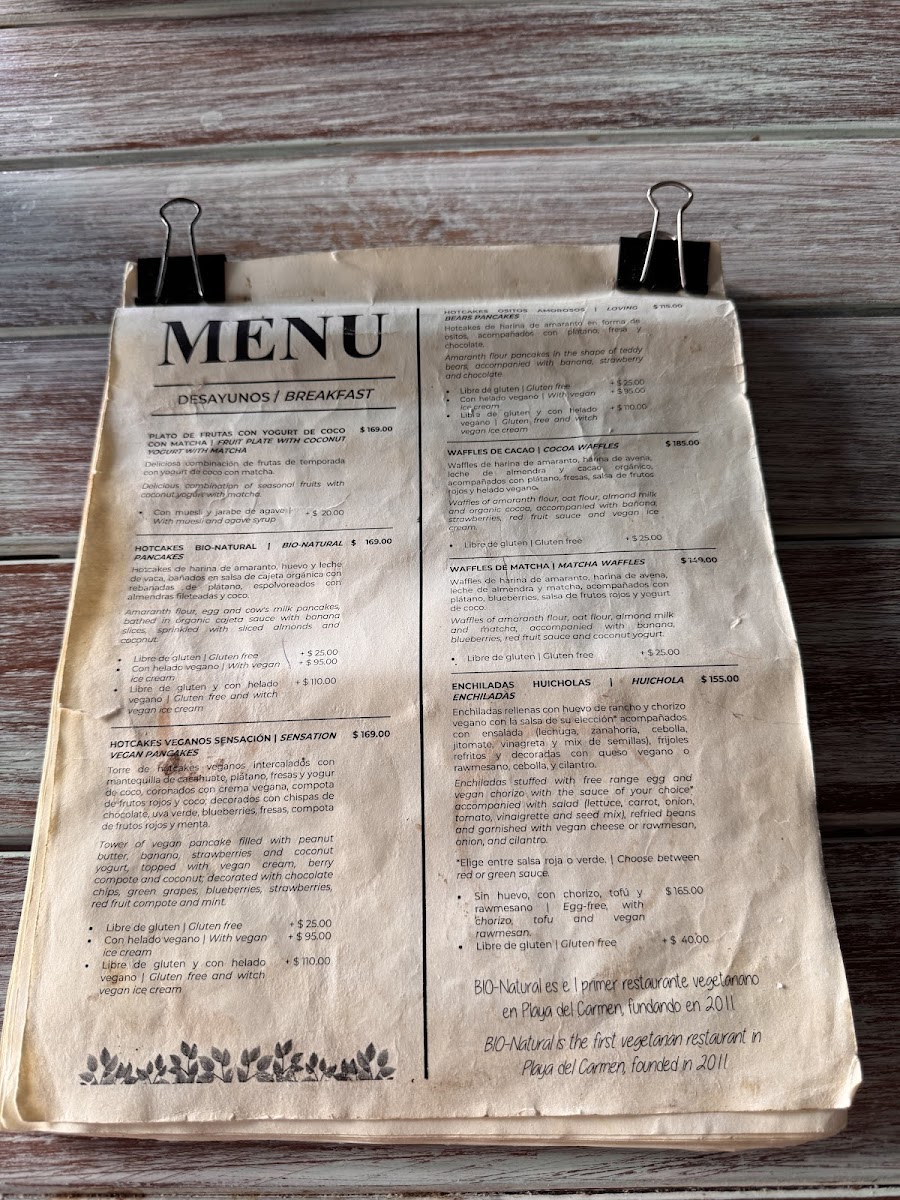 MENU
DESAYUNOS / BREAKFAST
PLATO DE FRUTAS CON YOGURT DE COCO $ 169.00
CON MATCHA | FRUIT PLATE WITH COCONUT
YOGURT WITH MATCHA
Deliciosa combinación de frutas de temporada
con yogurt de coco con matcha.
Delicious combination of seasonal fruits with
coconut yogurt with matcha.
• Con muesli y jarabe de agave | + $ 20.00
With muesli and agave syrup
HOTCAKES BIO-NATURAL | BIO-NATURAL $ 169.00
PANCAKES
Hotcakes de harina de amaranto, huevo y leche
de vaca, bañados en salsa de cajeta orgánica con
rebanadas de plátano, espolvoreados con
almendras fileteadas y coco.
Amaranth flour, egg and cow's milk pancakes,
bathed in organic cajeta sauce with banana
slices, sprinkled with sliced almonds and
coconut.
• Libre de gluten | Gluten free + $ 25.00
• Con helado vegano | With vegan + $ 95.00
ice cream
• Libre de gluten y con helado + $ 110.00
vegano | Gluten free and witch
vegan ice cream
HOTCAKES VEGANOS SENSACIÓN | SENSATION $ 169.00
VEGAN PANCAKES
Torre de hotcakes veganos intercalados con
mantequilla de cacahuate, plátano, fresas y yogur
de coco, coronados con crema vegana, compota
de frutos rojos y coco; decorados con chispas de
chocolate, uva verde, blueberries, fresas, compota
de frutos rojos y menta.
Tower of vegan pancake filled with peanut
butter, banana, strawberries and coconut
yogurt, topped with vegan cream, berry
compote and coconut; decorated with chocolate
chips, green grapes, blueberries, strawberries,
red fruit compote and mint.
• Libre de gluten | Gluten free + $ 25.00
• Con helado vegano | With vegan + $ 95.00
ice cream
• Libre de gluten y con helado + $ 110.00
vegano | Gluten free and witch
vegan ice cream
HOTCAKES OSITOS AMOROSOS | LOVING $ 115.00
BEARS PANCAKES
Hotcakes de harina de amaranto en forma de
ositos, acompañados con plátano, fresa y
chocolate.
Amaranth flour pancakes in the shape of teddy
bears, accompanied with banana, strawberry
and chocolate
• Libre de gluten | Gluten free + $ 25.00
• Con helado vegano | With vegan + $ 95.00
ice cream
• Libre de gluten y con helado + $ 110.00
vegano | Gluten free and witch
vegan ice cream
WAFFLES DE CACAO | COCOA WAFFLES $ 185.00
Waffles de harina de amaranto, harina de avena,
leche de almendra y cacao orgánico,
acompañados con plátano, fresas, salsa de frutos
rojos y helado vegano.
Waffles of amaranth flour, oat flour, almond milk
and organic cocoa, accompanied with banana,
strawberries, red fruit sauce and vegan ice
cream.
• Libre de gluten | Gluten free + $ 25.00
WAFFLES DE MATCHA | MATCHA WAFFLES
Waffles de harina de amaranto, harina de avena,
leche de almendra y matcha, acompañados con
plátano, blueberries, salsa de frutos rojos y yogurt
de coco.
Waffles of amaranth flour, oat flour, almond milk
and matcha, accompanied with banana,
blueberries, red fruit sauce and coconut yogurt.
• Libre de gluten | Gluten free + $ 25.00
ENCHILADAS HUICHOLAS | HUICHOLA $ 155.00
ENCHILADAS
Enchiladas rellenas con huevo de rancho y chorizo
vegano con la salsa de su elección* acompañados
con ensalada (lechuga, zanahoria, cebolla,
jitomate, vinagreta y mix de semillas), frijoles
refritos y decoradas con queso vegano o
rawmesano, cebolla, y cilantro.
Enchiladas stuffed with free range egg and
vegan chorizo with the sauce of your choice*
accompanied with salad (lettuce, carrot, onion,
tomato, vinaigrette and seed mix), refried beans
and garnished with vegan cheese or rawmesan,
onion, and cilantro.
*Elige entre salsa roja o verde. | Choose between
red or green sauce.
• Sin huevo, con chorizo, tofú y $ 165.00
rawmesano | Egg-free, with
chorizo, tofu and vegan
rawmesan.
• Libre de gluten | Gluten free + $ 40.00
BIO-Natural es e l primer restaurante vegetariano
en Playa del Carmen, fundando en 2011
BIO-Natural is the first vegetarian restaurant in
Playa del Carmen, founded in 2011